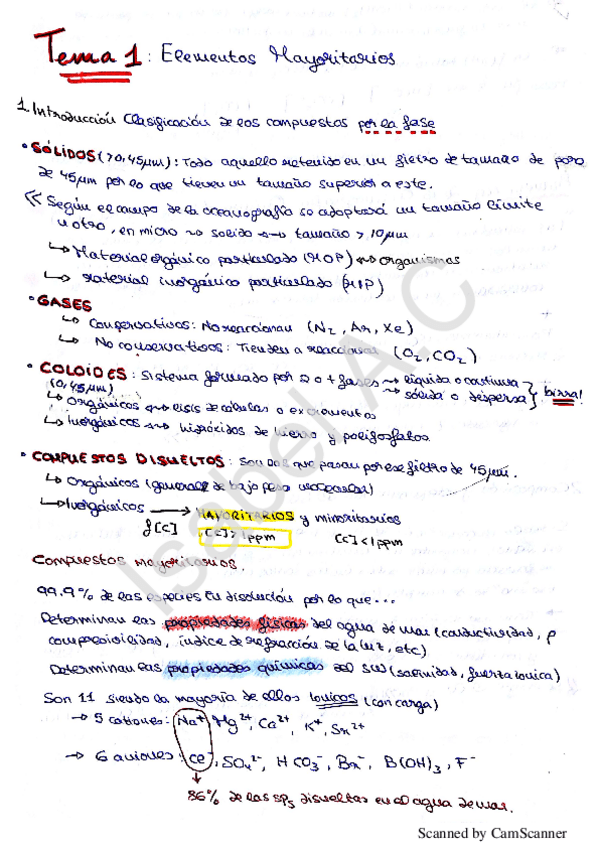 Tema 1: Elementos Mayoritarios
1. Introducción Clasificación de los compuestos por la fase
• SÓLIDOS (>0,45μm): Todo aquello retenido en un filtro de tamaño de poro
de 45μm por lo que tienen un tamaño superior a este.
<< Según el campo de la oceanografía se adoptará un tamaño límite
u otro, en micro → solido → tamaño > 10μm
↳ Material orgánico particulado (MOP) → organismos
↳ Material inorgánico particulado (MIP)
• GASES
↳ Conservativos: No reaccionan (N₂, Ar, Xe)
↳ No conservativos: Tienden a reaccionar (O₂, CO₂)
• COLOIDES: Sistema formado por 2 o + fases → líquida o continua
(0,45μm) → sólida o dispersa
↳ Orgánicos → lisis de células o excrementos
↳ Inorgánicos → hidróxidos de hierro y polifosfatos.
• COMPUESTOS DISUELTOS: Son los que pasan por ese filtro de 45μm.
↳ Orgánicos (general de bajo peso molecular)
↳ Inorgánicos → MAYORITARIOS y minoritarios
f[C] [C]>1ppm [C]<1ppm
Compuestos mayoritarios.
99.9% de las especies en disolución por lo que...
Determinan las propiedades físicas del agua de mar (conductividad, ρ
compresividad, índice de refracción de la luz, etc)
Determinan las propiedades químicas del SW (salinidad, fuerza iónica)
Son 11 siendo la mayoría de ellos iónicos (con carga)
→ 5 cationes: Na⁺, Mg²⁺, Ca²⁺, K⁺, Sr²⁺
→ 6 aniones: Cl⁻, SO₄²⁻, HCO₃⁻, Br⁻, B(OH)₃, F⁻
86% de las sps disueltas en el agua de mar.
Isabel A C
Scanned by CamScanner